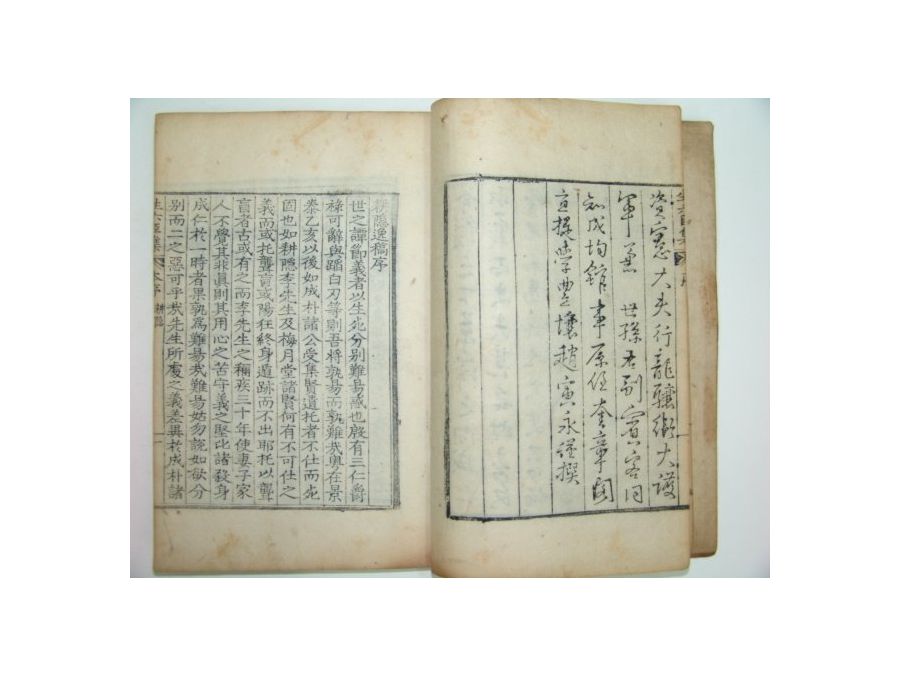 生六臣集 序
資憲大夫行龍驤衛大護
軍兼 世孫右副賓客同
知成均館事原任奎章閣
直提學豊壤趙寅永謹撰
耕隱逸稿序
世之譚節義者以生死分別難易惑也殷有三仁爵
祿可辭與蹈白刃等則吾將孰易而孰難哉粤在景
泰乙亥以後如成朴諸公受集賢遺托者不仕而死
固也如耕隱李先生及梅月堂諸賢何有不可仕之
義而或托聾盲或陽狂終身遁跡而不出耶托以聾
盲者古或有之而李先生之稱疾三十年使妻子家
人不覺其非眞則其用心之苦守義之堅比諸殺身
成仁於一時者果孰爲難易哉難易姑勿說如欲分
別而二之惡可乎哉先生所處之義差異於成朴諸
生六臣集 本序 耕隱 一